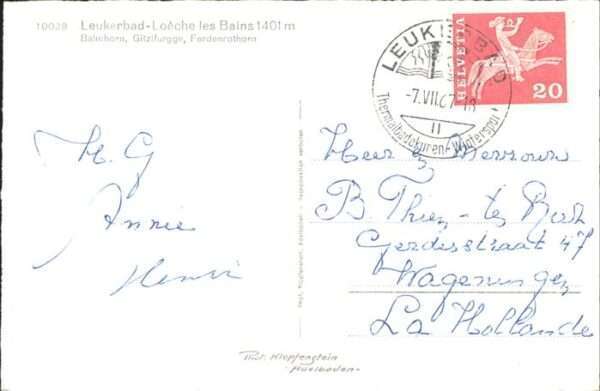 10029 Leukerbad-Loèche les Bains 1401 m
Balmhorn, Gitzifurgge, Ferdenrothorn
LEUKERBAD
-7.VII.67-18
Thermalbadekuren + Wintersport
HELVETIA
20
H. G
Annie
Henri
Heer en Mevrouw
B Thien - te
straat 47
Wageningen
La Hollande
Phot. Klopfenstein
Adelboden